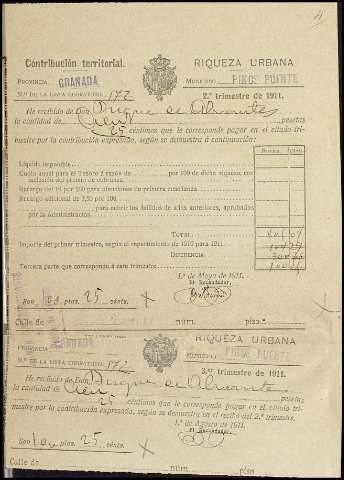 Contribución territorial. RIQUEZA URBANA
PROVINCIA GRANADA MUNICIPIO PINOS PUENTE
N.º DE LA LISTA COBRATORIA 172 2.º trimestre de 1911.
He recibido de Don Duque de Abrantes
la cantidad de Cien pesetas
25 céntimos que le corresponde pagar en el citado tri-
mestre por la contribución expresada, según se demuestra á continuación:
Pesetas Cts.
Líquido imponible
Cuota anual para el Tesoro á razón de por 100 de dicha riqueza, con
inclusión del premio de cobranza
Recargo del 16 por 100 para atenciones de primera enseñanza
Recargo adicional de 7,50 por 100
para cubrir los fallidos de años anteriores, aprobados
por la Administración
TOTAL
Importe del primer trimestre, según el repartimiento de 1910 para 1911.
DIFERENCIA
Tercera parte que corresponde á este trimestre
1.º de Mayo de 1911.
El Recaudador,
Son ptas. 25 cénts.
Calle de núm. piso
RIQUEZA URBANA
PROVINCIA GRANADA MUNICIPIO PINOS PUENTE
N.º DE LA LISTA COBRATORIA 172 3.er trimestre de 1911.
He recibido de Don Duque de Abrantes
la cantidad de Cien pesetas
25 céntimos que le corresponde pagar en el citado tri-
mestre por la contribución expresada, según se demuestra en el recibo del 2.º trimestre.
1.º de Agosto de 1911.
El Recaudador,
Son 100 ptas. 25 cénts.
Calle de núm. piso